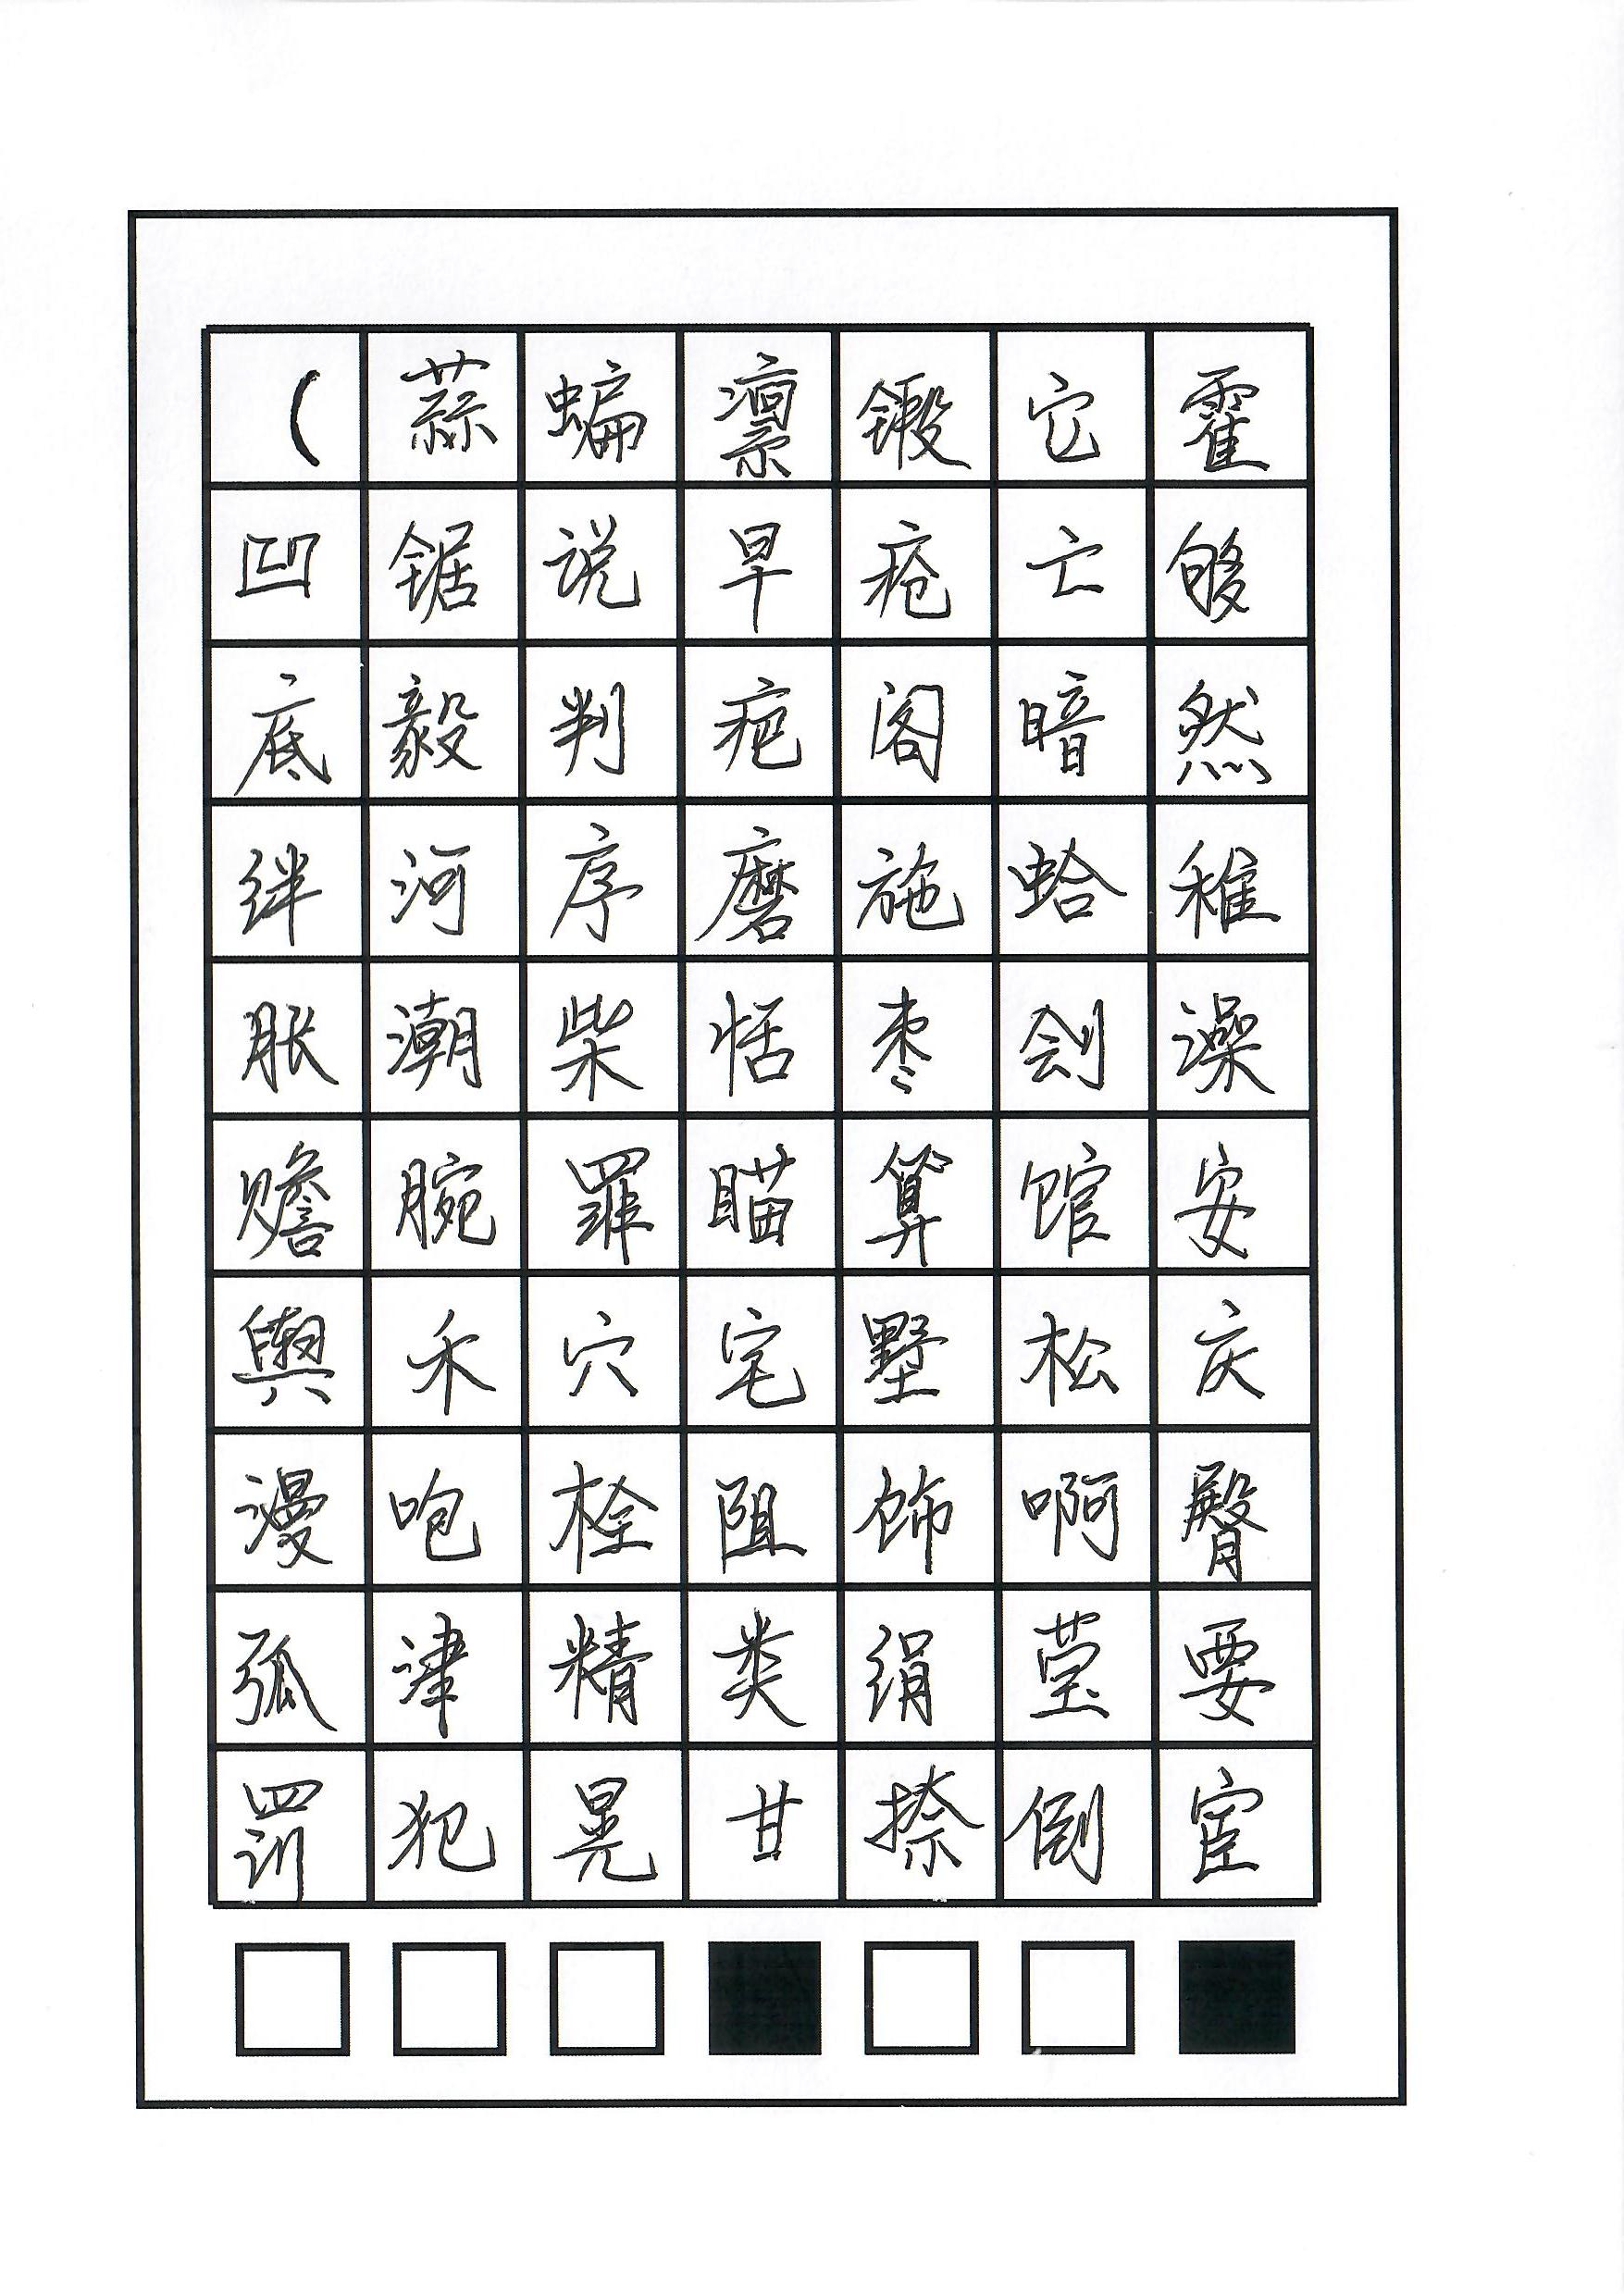 （蒜蝙凛锻它霍
凹锯说早疮亡够
底毅判疤阁暗然
绊河序磨施蛤稚
胀潮柴恬枣刽澡
赡腕罪瞄算馆安
舆禾穴宅墅松庆
漫咆栓阻饰啊臀
弧津精类绢莹要
罚犯晃甘捺倒宦